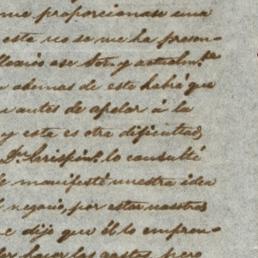 me proporcionase una
esta no se me ha presen-
ese Sor. y actualm.te
ademas de este habré que
antes de apelar á la
y esta es otra dificultad
Dn. Crispin. lo consulté
manifesté nuestra idea
negocio, por estar nosotros
e dijo que él lo empren-
hacer los gastos, pero